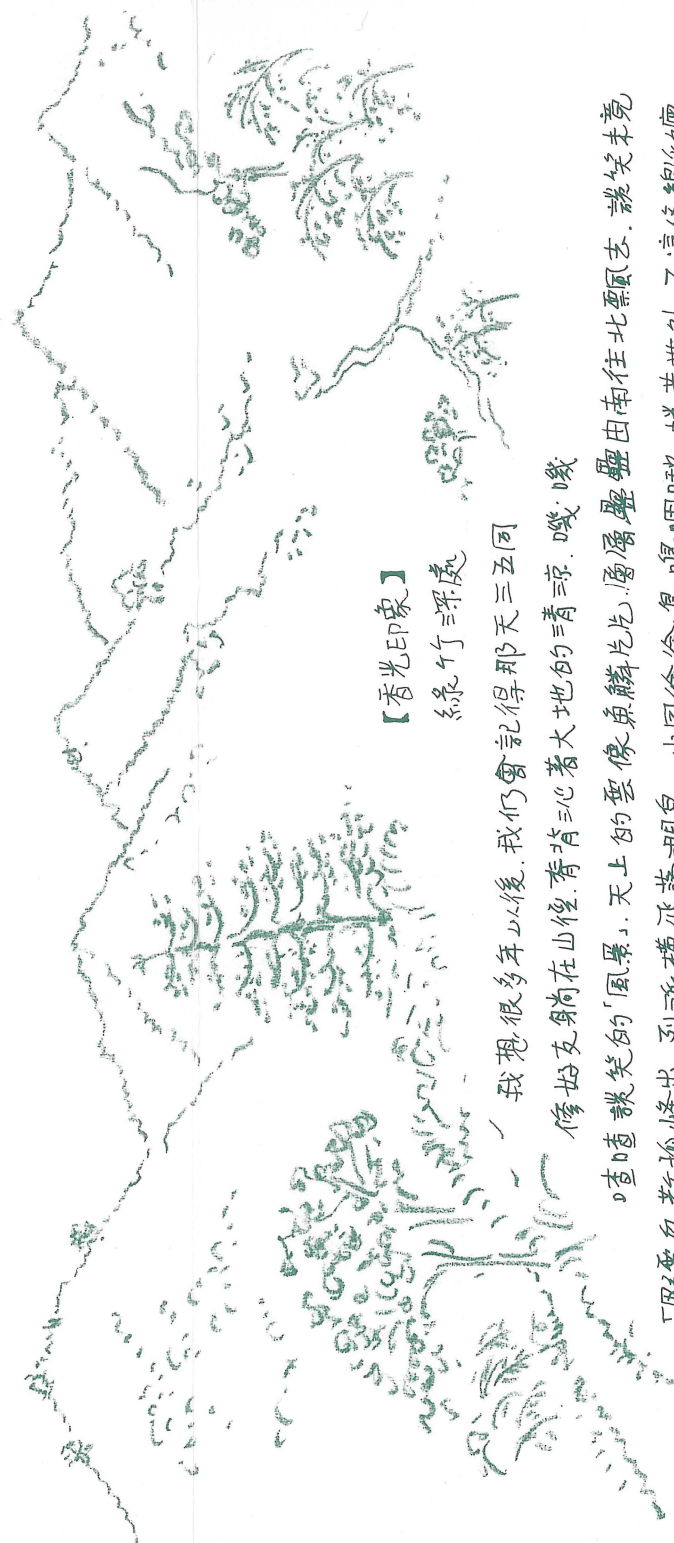 【香光印象】
綠竹深處
我想很多年以後.我們會記得那天三五同
修好友躺在山徑.脊背沁著大地的清涼.嘰.嘰
喳喳談笑的「風景」.天上的雲像魚鱗片片.層層疊疊由南往北飄去.談笑未竟